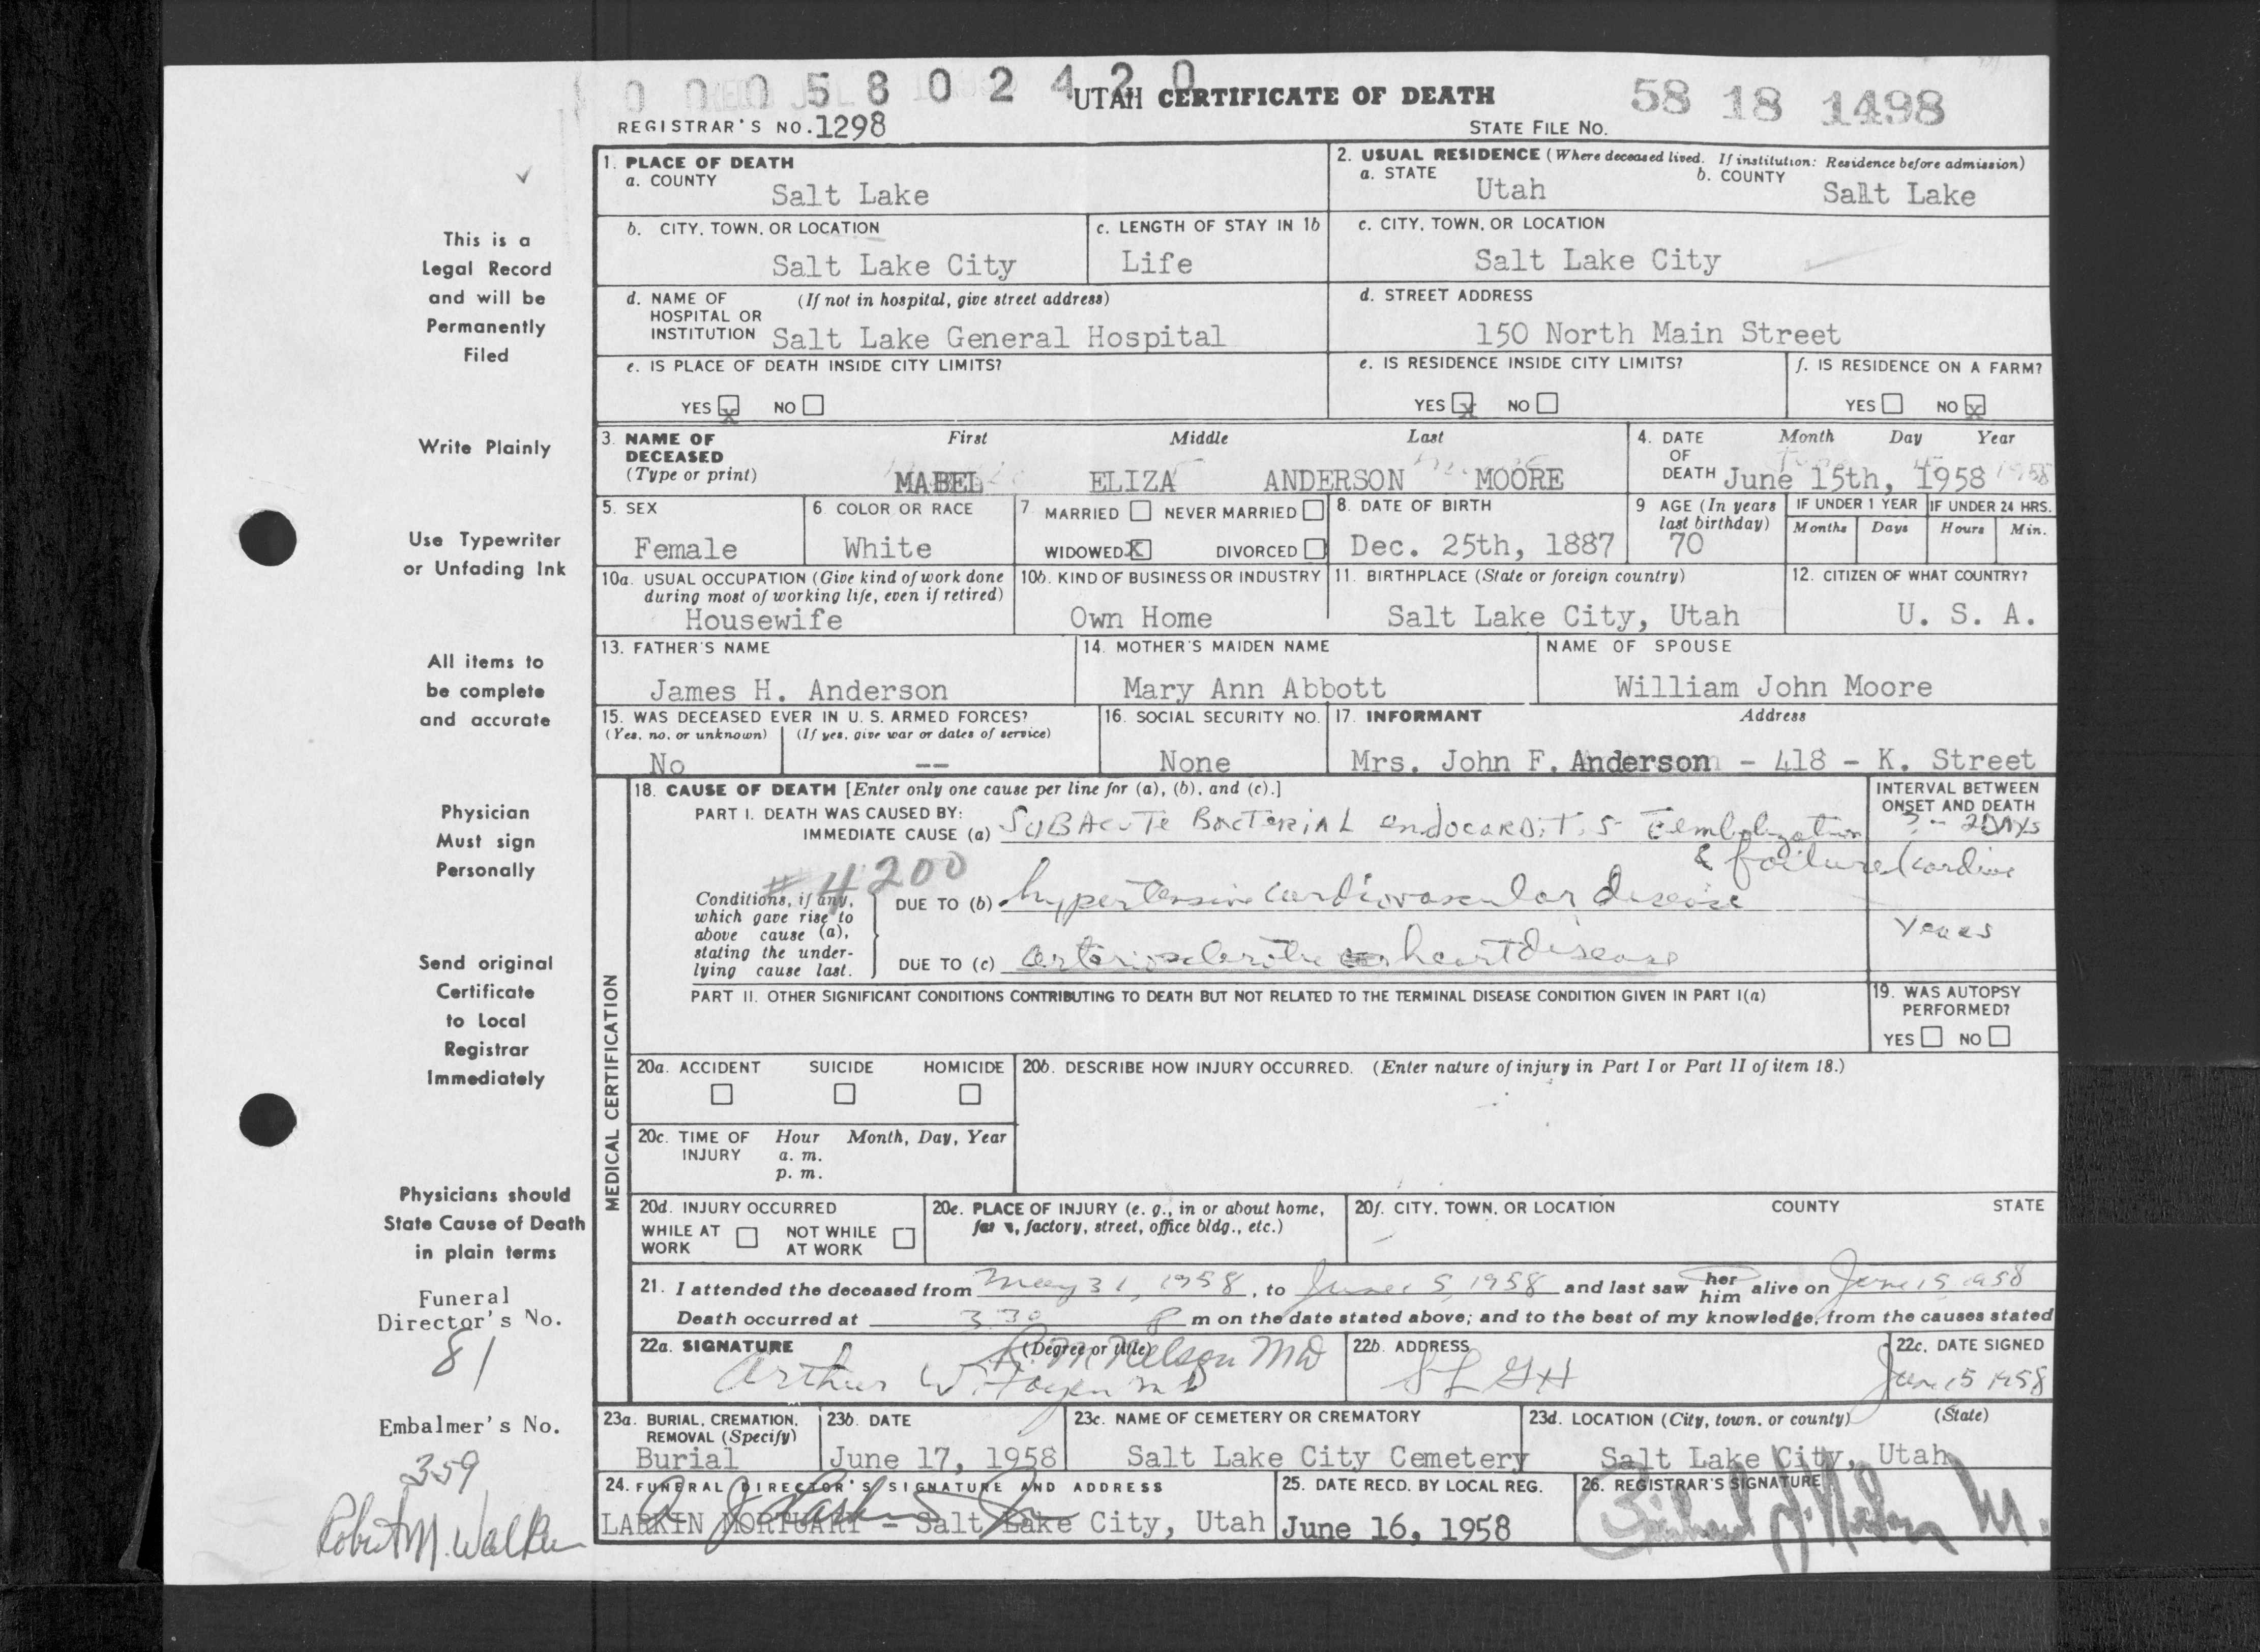 0 0 0 5 8 0 2 4 2 0
UTAH CERTIFICATE OF DEATH
58 18 1498
REGISTRAR'S NO. 1298
STATE FILE NO.
This is a
Legal Record
and will be
Permanently
Filed
Write Plainly
Use Typewriter
or Unfading Ink
All items to
be complete
and accurate
Physician
Must sign
Personally
Send original
Certificate
to Local
Registrar
Immediately
Physicians should
State Cause of Death
in plain terms
Funeral
Director's No.
81
Embalmer's No.
359
Robert M. Walker
1. PLACE OF DEATH
a. COUNTY
Salt Lake
2. USUAL RESIDENCE (Where deceased lived. If institution: Residence before admission)
a. STATE Utah b. COUNTY Salt Lake
b. CITY, TOWN, OR LOCATION
Salt Lake City
c. LENGTH OF STAY IN 1b
Life
c. CITY, TOWN, OR LOCATION
Salt Lake City
d. NAME OF (If not in hospital, give street address)
HOSPITAL OR
INSTITUTION Salt Lake General Hospital
d. STREET ADDRESS
150 North Main Street
e. IS PLACE OF DEATH INSIDE CITY LIMITS?
YES x NO
e. IS RESIDENCE INSIDE CITY LIMITS?
YES x NO
f. IS RESIDENCE ON A FARM?
YES NO x
3. NAME OF First Middle Last
DECEASED
(Type or print) MABEL ELIZA ANDERSON MOORE
4. DATE Month Day Year
OF
DEATH June 15th, 1958
5. SEX
Female
6. COLOR OR RACE
White
7. MARRIED NEVER MARRIED
WIDOWED X DIVORCED
8. DATE OF BIRTH
Dec. 25th, 1887
9 AGE (In years
last birthday)
70
IF UNDER 1 YEAR IF UNDER 24 HRS.
Months Days Hours Min.
10a. USUAL OCCUPATION (Give kind of work done
during most of working life, even if retired)
Housewife
10b. KIND OF BUSINESS OR INDUSTRY
Own Home
11. BIRTHPLACE (State or foreign country)
Salt Lake City, Utah
12. CITIZEN OF WHAT COUNTRY?
U. S. A.
13. FATHER'S NAME
James H. Anderson
14. MOTHER'S MAIDEN NAME
Mary Ann Abbott
NAME OF SPOUSE
William John Moore
15. WAS DECEASED EVER IN U. S. ARMED FORCES?
(Yes, no, or unknown) (If yes, give war or dates of service)
No --
16. SOCIAL SECURITY NO.
None
17. INFORMANT Address
Mrs. John F. Anderson - 418 - K. Street
MEDICAL CERTIFICATION
18. CAUSE OF DEATH [Enter only one cause per line for (a), (b), and (c).]
INTERVAL BETWEEN
ONSET AND DEATH
PART I. DEATH WAS CAUSED BY:
IMMEDIATE CAUSE (a) SUBACUTE BACTERIAL endocarditis embolization ? - 2 DAYS
& failure (cardiac
# 4200
Conditions, if any,
which gave rise to
above cause (a),
stating the under-
lying cause last.
DUE TO (b) hypertensive cardiovascular disease
years
DUE TO (c) arteriosclerotic heart disease
PART II. OTHER SIGNIFICANT CONDITIONS CONTRIBUTING TO DEATH BUT NOT RELATED TO THE TERMINAL DISEASE CONDITION GIVEN IN PART I(a)
19. WAS AUTOPSY
PERFORMED?
YES NO
20a. ACCIDENT SUICIDE HOMICIDE
20b. DESCRIBE HOW INJURY OCCURRED. (Enter nature of injury in Part I or Part II of item 18.)
20c. TIME OF Hour Month, Day, Year
INJURY a. m.
p. m.
20d. INJURY OCCURRED
WHILE AT NOT WHILE
WORK AT WORK
20e. PLACE OF INJURY (e. g., in or about home,
factory, street, office bldg., etc.)
20f. CITY, TOWN, OR LOCATION COUNTY STATE
21. I attended the deceased from May 31, 1958, to June 15, 1958 and last saw her him alive on June 15, 1958
Death occurred at 3:30 P m on the date stated above; and to the best of my knowledge, from the causes stated
22a. SIGNATURE (Degree or title)
Nelson MD
Arthur W. MD
22b. ADDRESS
SLGH
22c. DATE SIGNED
June 15 1958
23a. BURIAL, CREMATION,
REMOVAL (Specify)
Burial
23b. DATE
June 17, 1958
23c. NAME OF CEMETERY OR CREMATORY
Salt Lake City Cemetery
23d. LOCATION (City, town, or county) (State)
Salt Lake City, Utah
24. FUNERAL DIRECTOR'S SIGNATURE AND ADDRESS
LARKIN MORTUARY - Salt Lake City, Utah
25. DATE RECD. BY LOCAL REG.
June 16, 1958
26. REGISTRAR'S SIGNATURE